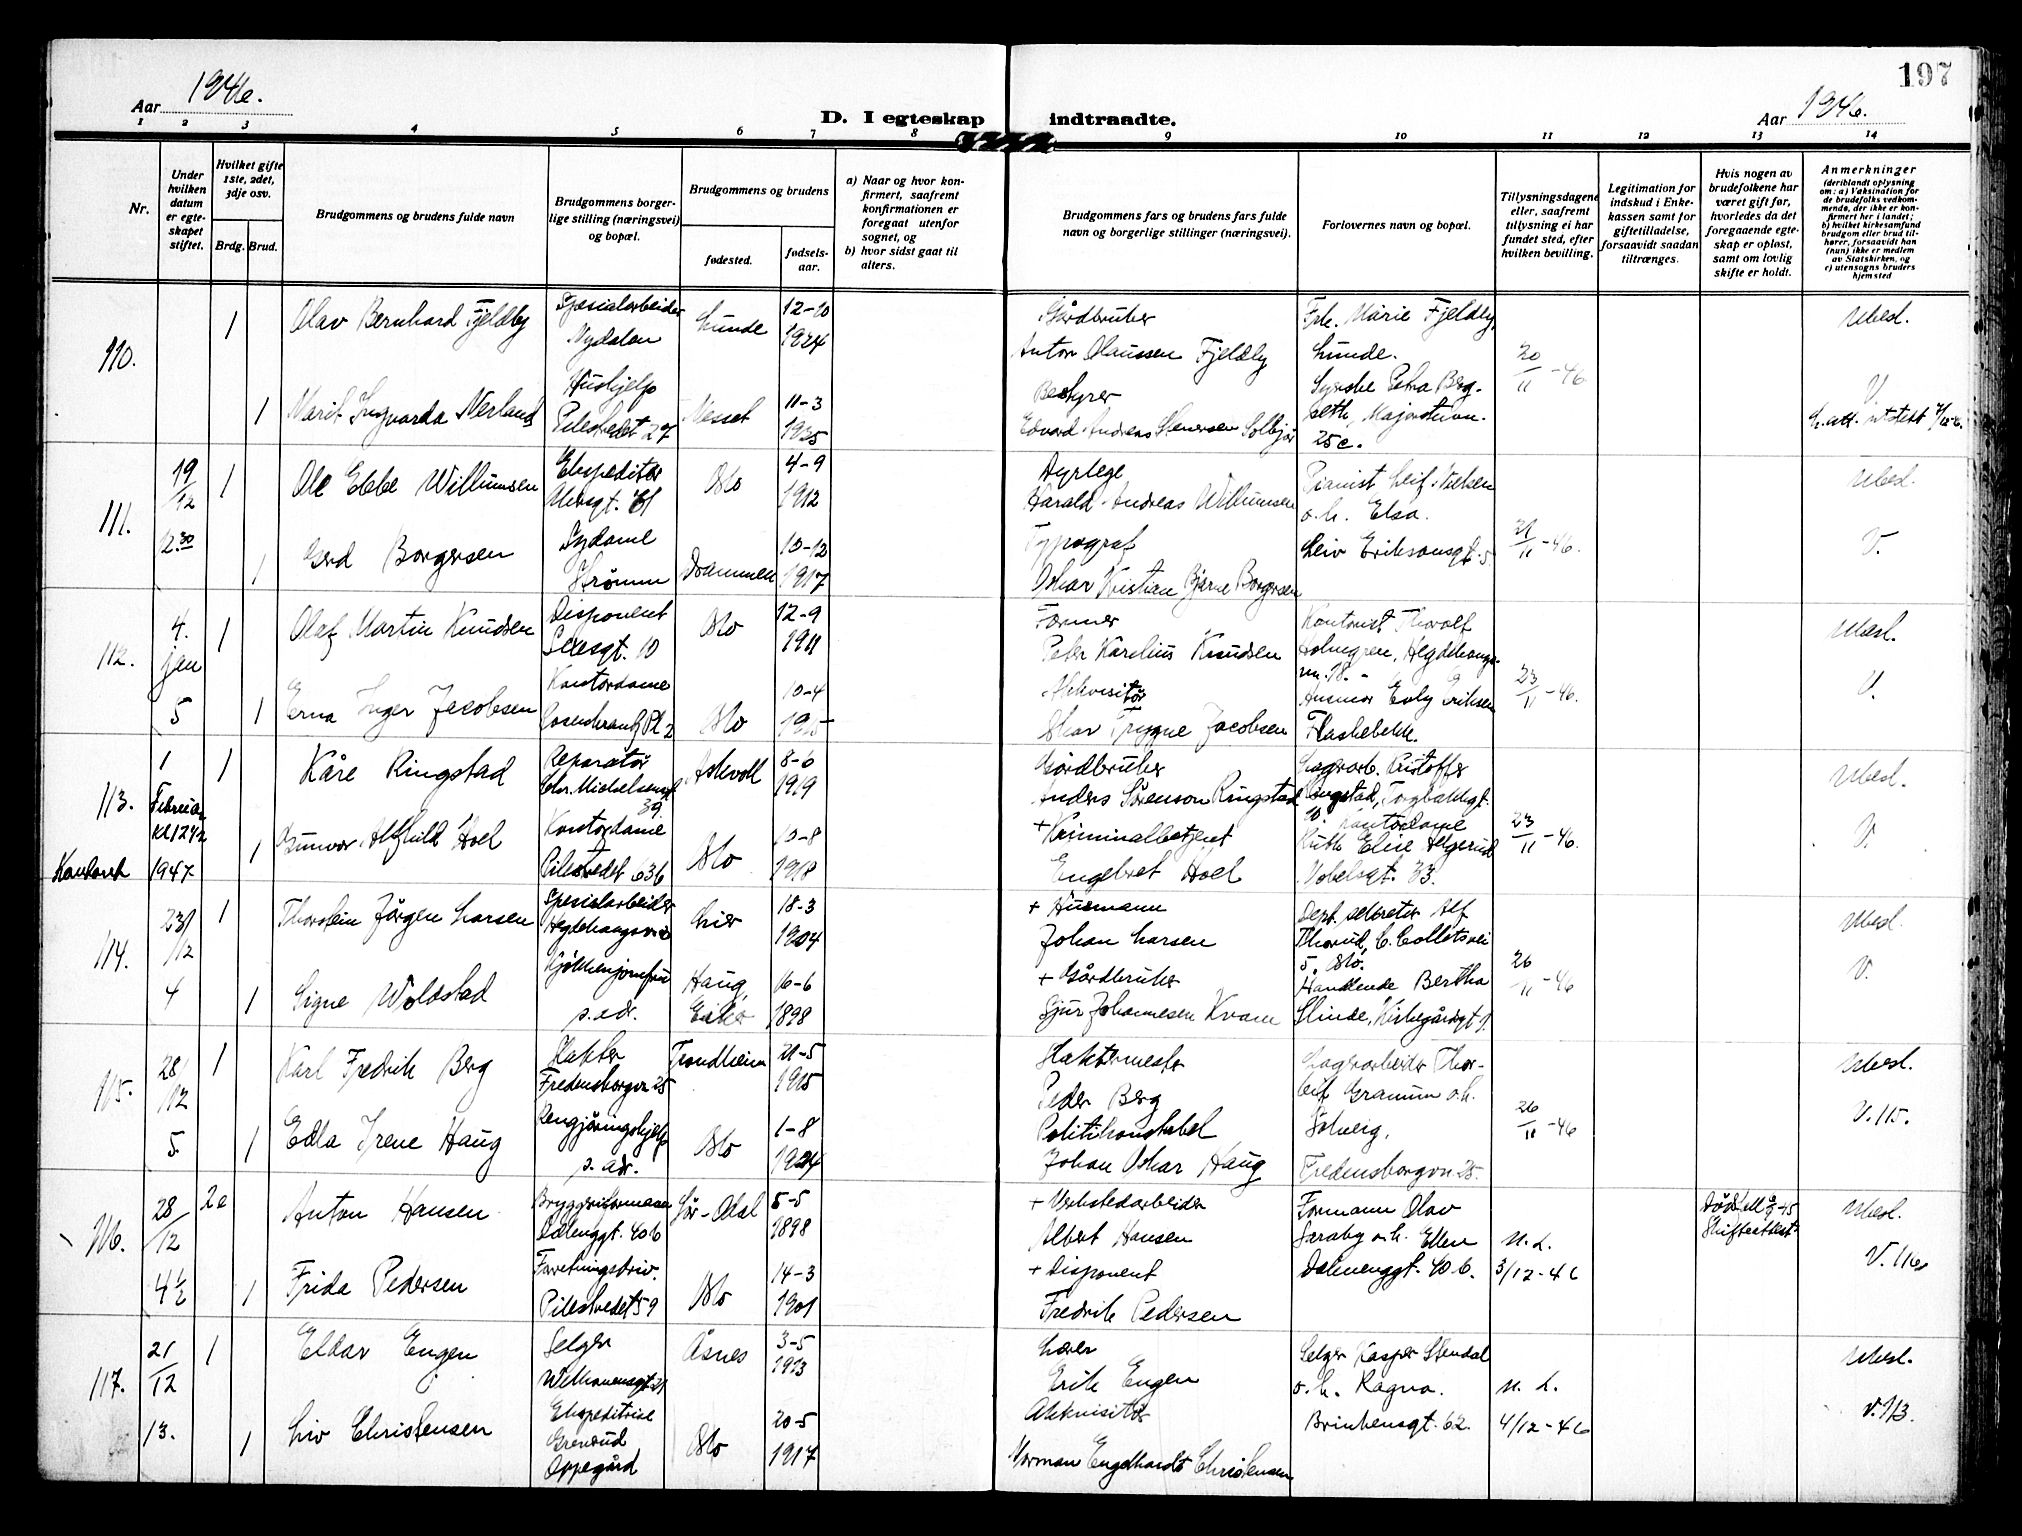 197
Aar 1946.
D. I egteskap indtraadte.
Aar 1946.
1 2 3 4 5 6 7 8 9 10 11 12 13 14
Nr.
Under hvilken datum er egteskapet stiftet.
Hvilket gifte 1ste, 2det, 3dje osv.
Brdg. Brud.
Brudgommens og brudens fulde navn
Brudgommens borgerlige stilling (næringsvei) og bopæl.
Brudgommens og brudens
fødested.
fødselsaar.
a) Naar og hvor konfirmert, saafremt konfirmationen er foregaat utenfor sognet, og
b) hvor sidst gaat til alters.
Brudgommens fars og brudens fars fulde navn og borgerlige stillinger (næringsvei).
Forlovernes navn og bopæl.
Tillysningsdagene eller, saafremt tillysning ei har fundet sted, efter hvilken bevilling.
Legitimation for indskud i Enkekassen samt for giftetilladelse, forsaavidt saadan tiltrænges.
Hvis nogen av brudefolkene har været gift før, hvorledes da det foregaaende egteskap er opløst, samt om lovlig skifte er holdt.
Anmerkninger (deriblandt oplysning om: a) Vaksination for de brudefolks vedkommende, der ikke er konfirmert her i landet; b) hvilket kirkesamfund brudgom eller brud tilhører, forsaavidt han (hun) ikke er medlem av Statskirken, og c) utensogns bruders hjemsted
110.
1 Olav Bernhard Fjeldby Spesialarbeider Nydalen Lunde 12-10 1924
Gårdbruker Anton Olaussen Fjeldby
Frk. Marie Fjeldby, Lunde.
20/11-46
Ubesl.
1 Marit Ingvarda Nerland Hushjelp Pilestredet 27 Nesset 11-3 1925
Bestyrer Edvard Andreas Stenersen Solbjør
Syerske Petra Berg-seth, Majorstuvn. 25c.
V.
111.
19/12 2.30
1 Ole Ebbe Willumsen Ekspeditør Akersgt. 61 Oslo 4-9 1912
Dyrlege Harald Andreas Willumsen
Pianist Leif Nielsen o.h. Elsa.
Leiv Eriksonsgt. 5
21/11-46.
Ubesl.
1 Gerd Borgersen Sydame Strømm Drammen 10-12 1917
Typograf Oskar Kristian Bjarne Borgersen
V.
112.
4. jan 5
1 Olaf Martin Knudsen Disponent Sexesgt. 10 Oslo 12-9 1911
Former Peter Karelius Knudsen
Kontorist Thoralf Holmgren, Hegdehaugs-vn. 18.
23/11-46.
Ubesl.
1 Erna Inger Jacobsen Kontordame Rosenkrantz Pl. 2 Oslo 10-4 1915
Akkvisitør Oskar Trygve Jacobsen
Gunnor Evly Eriksen Flaskebekk.
V.
113.
1 Februar kl. 12 1/2 1947
Kontoret
1 Kåre Ringstad Reparatør Chr. Michelsensgt. 39. Askvoll 8-6 1919
Gårdbruker Anders Sørenson Ringstad
Lagerarb. Kristoffer Ringstad, Torgbakkgt. 10.
23/11-46.
Ubesl.
1 Gunvor Alfhild Hoel Kontordame Pilestredet 63b Oslo 10-8 1918
+ Kriminalbetjent Engebret Hoel
Kontordame Ruth Elise Helgerud Nobelsgt. 33.
V.
114.
23/12 4
1 Thorstein Jørgen Larsen Spesialarbeider Lier 18-3 1904
+ Husmann Johan Larsen
Dept. sekretær Alf Thorud, C. Colletsvei 5. Oslo.
26/11-46
Ubesl.
1 Signe Woldstad Kjøkkenjomfru s. adr. Haug, 16-6 1898
+ Gårdbruker Sjur Johannesen Kvam
Handlende Bertha Slinde, Kirkegårdsgt 1.
V.
115.
28/12 5.
1 Karl Fredrik Berg Slakter Fredensborgvn 25 Trondheim 21-5 1915
Slaktermester Peder Berg
Lagerarbeider Thor-leif Granum o.h. Solveig, Fredensborgvn. 25.
26/11-46
Ubesl.
1 Edla Irene Haug Rengjøringshjelp s. adr. Oslo 1-8 1924
Politikonstabel Johan Oskar Haug
V. 115.
116.
28/12 4 1/2
2e Anton Hansen Bryggeriformann Dælenggt. 40b Sør-Odal 5-5 1898
+ Verkstedarbeider Albert Hansen
Formann Olav Saraby o.h. Ellen Dælenenggt. 40b.
N. L. 3/12-46
Skifteattest.
Ubesl.
1 Frida Pedersen Forretningsdriv. Pilestredet 59 Oslo 14-3 1901
+ Disponent Fredrik Pedersen
V. 116
117.
21/12 13.
1 Eldar Engen Selger Welhavensgt 21 Åsnes 3-5 1913
Lærer Erik Engen
Selger Kasper Stendal o.h. Ragna. Brinkensgt. 62.
N. L. 4/12-46
Ubesl.
1 Liv Christensen Ekspeditrise Grenrud Oppegård Oslo 20-5 1917
Akkvisitør Norman Engelhardt Christensen
V. 113.